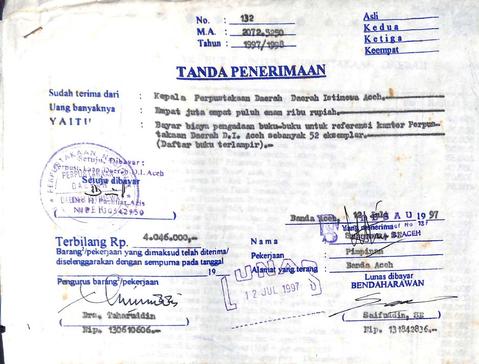 No. : 132
M.A. : 2072.5250
Tahun : 1997/1998
Asli
Kedua
Ketiga
Keempat
TANDA PENERIMAAN
Sudah terima dari : Kepala Perpustakaan Daerah Daerah Istimewa Aceh.
Uang banyaknya : Empat juta empat puluh enam ribu rupiah.
YAITU : Bayar biaya pengadaan buku-buku untuk referensi kantor Perpus-
takaan Daerah D.I. Aceh sebanyak 52 eksemplar.
(Daftar buku terlampir).-
Setuju Dibayar :
Daerah D.I. Aceh
Setuju dibayar
NIP
Banda Aceh, 12 Juli 1997
Yang menerima
Terbilang Rp. 4.046.000,-
Nama :
Barang/pekerjaan yang dimaksud telah diterima/
Pekerjaan : Pimpinan
diselenggarakan dengan sempurna pada tanggal
19
Alamat yang terang : Banda Aceh
LUNAS
12 JUL 1997
Pengurus barang/pekerjaan
Lunas dibayar
BENDAHARAWAN
Drs. Taharuddin
Nip. 130610606.-
Saifuddin, SE
Nip. 131842836.-